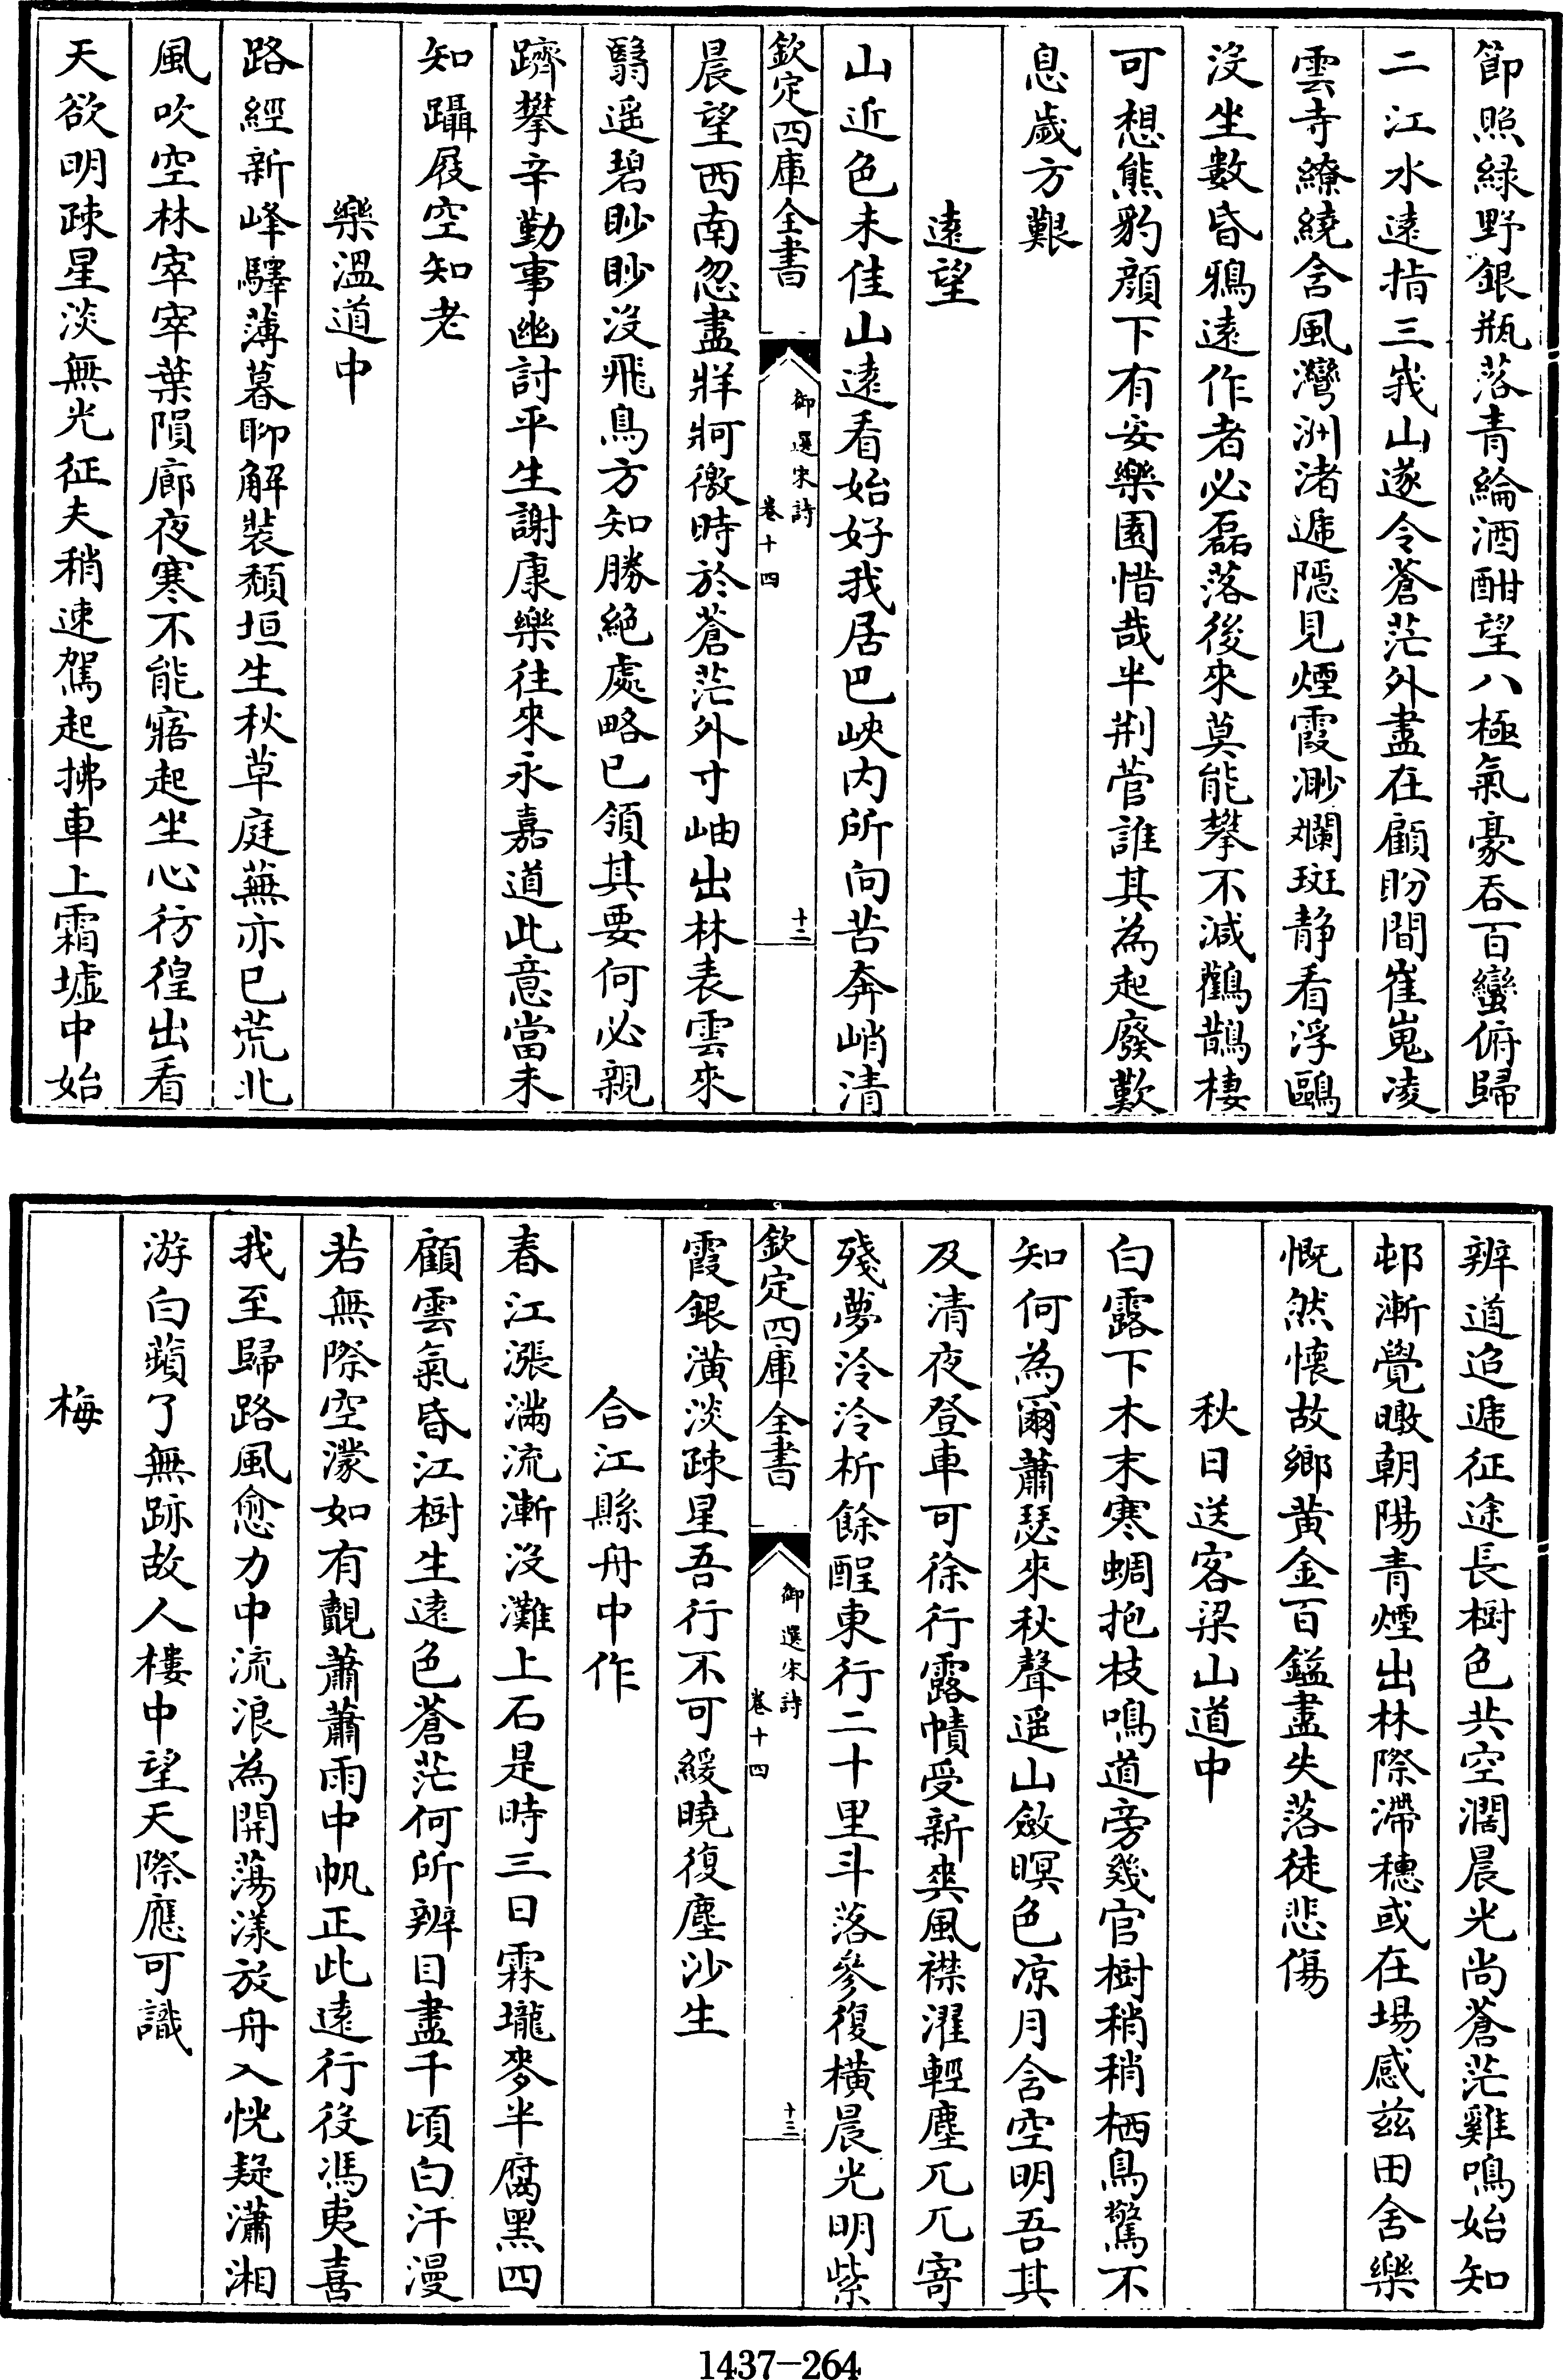 節照綠野銀瓶落青綸酒酣望八極氣豪吞百蠻俯歸
二江水遠指三峩山遂令蒼茫外盡在顧盼間崔嵬凌
雲寺繚繞含風灣洲渚遞隠見煙霞渺斕斑静看浮鷗
沒坐數昏鴉遠作者必磊落後來莫能攀不減鸛鵲棲
可想熊豹顔下有安樂園惜哉半荆菅誰其為起廢歎
息歲方艱
遠望
山近色未佳山遠看始好我居巴峽内所向苦奔峭清
欽定四庫全書
御選宋詩
卷十四
十二
晨望西南忽盡牂牁徼時於蒼茫外寸岫出林表雲來
翳遥碧眇眇沒飛鳥方知勝絶處略已領其要何必親
躋攀辛勤事幽討平生謝康樂往來永嘉道此意當未
知躡屐空知老
樂温道中
路經新峰驛薄暮聊解裝頽垣生秋草庭蕪亦已荒北
風吹空林宰宰葉隕廊夜寒不能寤起坐心彷徨出看
天欲明疎星淡無光征夫稍速駕起拂車上霜墟中始
辨道迢遞征途長樹色共空濶晨光尚蒼茫雞鳴始知
邨漸覺暾朝陽青煙出林際滯穗或在場感兹田舍樂
慨然懷故鄉黄金百鎰盡失落徒悲傷
秋日送客梁山道中
白露下木末寒蜩抱枝鳴道旁幾官樹稍稍栖鳥驚不
知何為爾蕭瑟來秋聲遥山斂暝色凉月含空明吾其
及清夜登車可徐行露幘受新爽風襟濯輕塵兀兀寄
殘夢泠泠析餘酲東行二十里斗落參復橫晨光明紫
欽定四庫全書
御選宋詩
卷十四
十三
霞銀潢淡疎星吾行不可緩曉復塵沙生
合江縣舟中作
春江漲滿流漸沒灘上石是時三日霖壠麥半腐黑四
顧雲氣昏江樹生遠色蒼茫何所辨目盡千頃白汗漫
若無際空濛如有覿蕭蕭雨中帆正此遠行役馮夷喜
我至歸路風愈力中流浪為開蕩漾放舟入恍疑瀟湘
游白蘋了無跡故人樓中望天際應可識
梅
1437-264